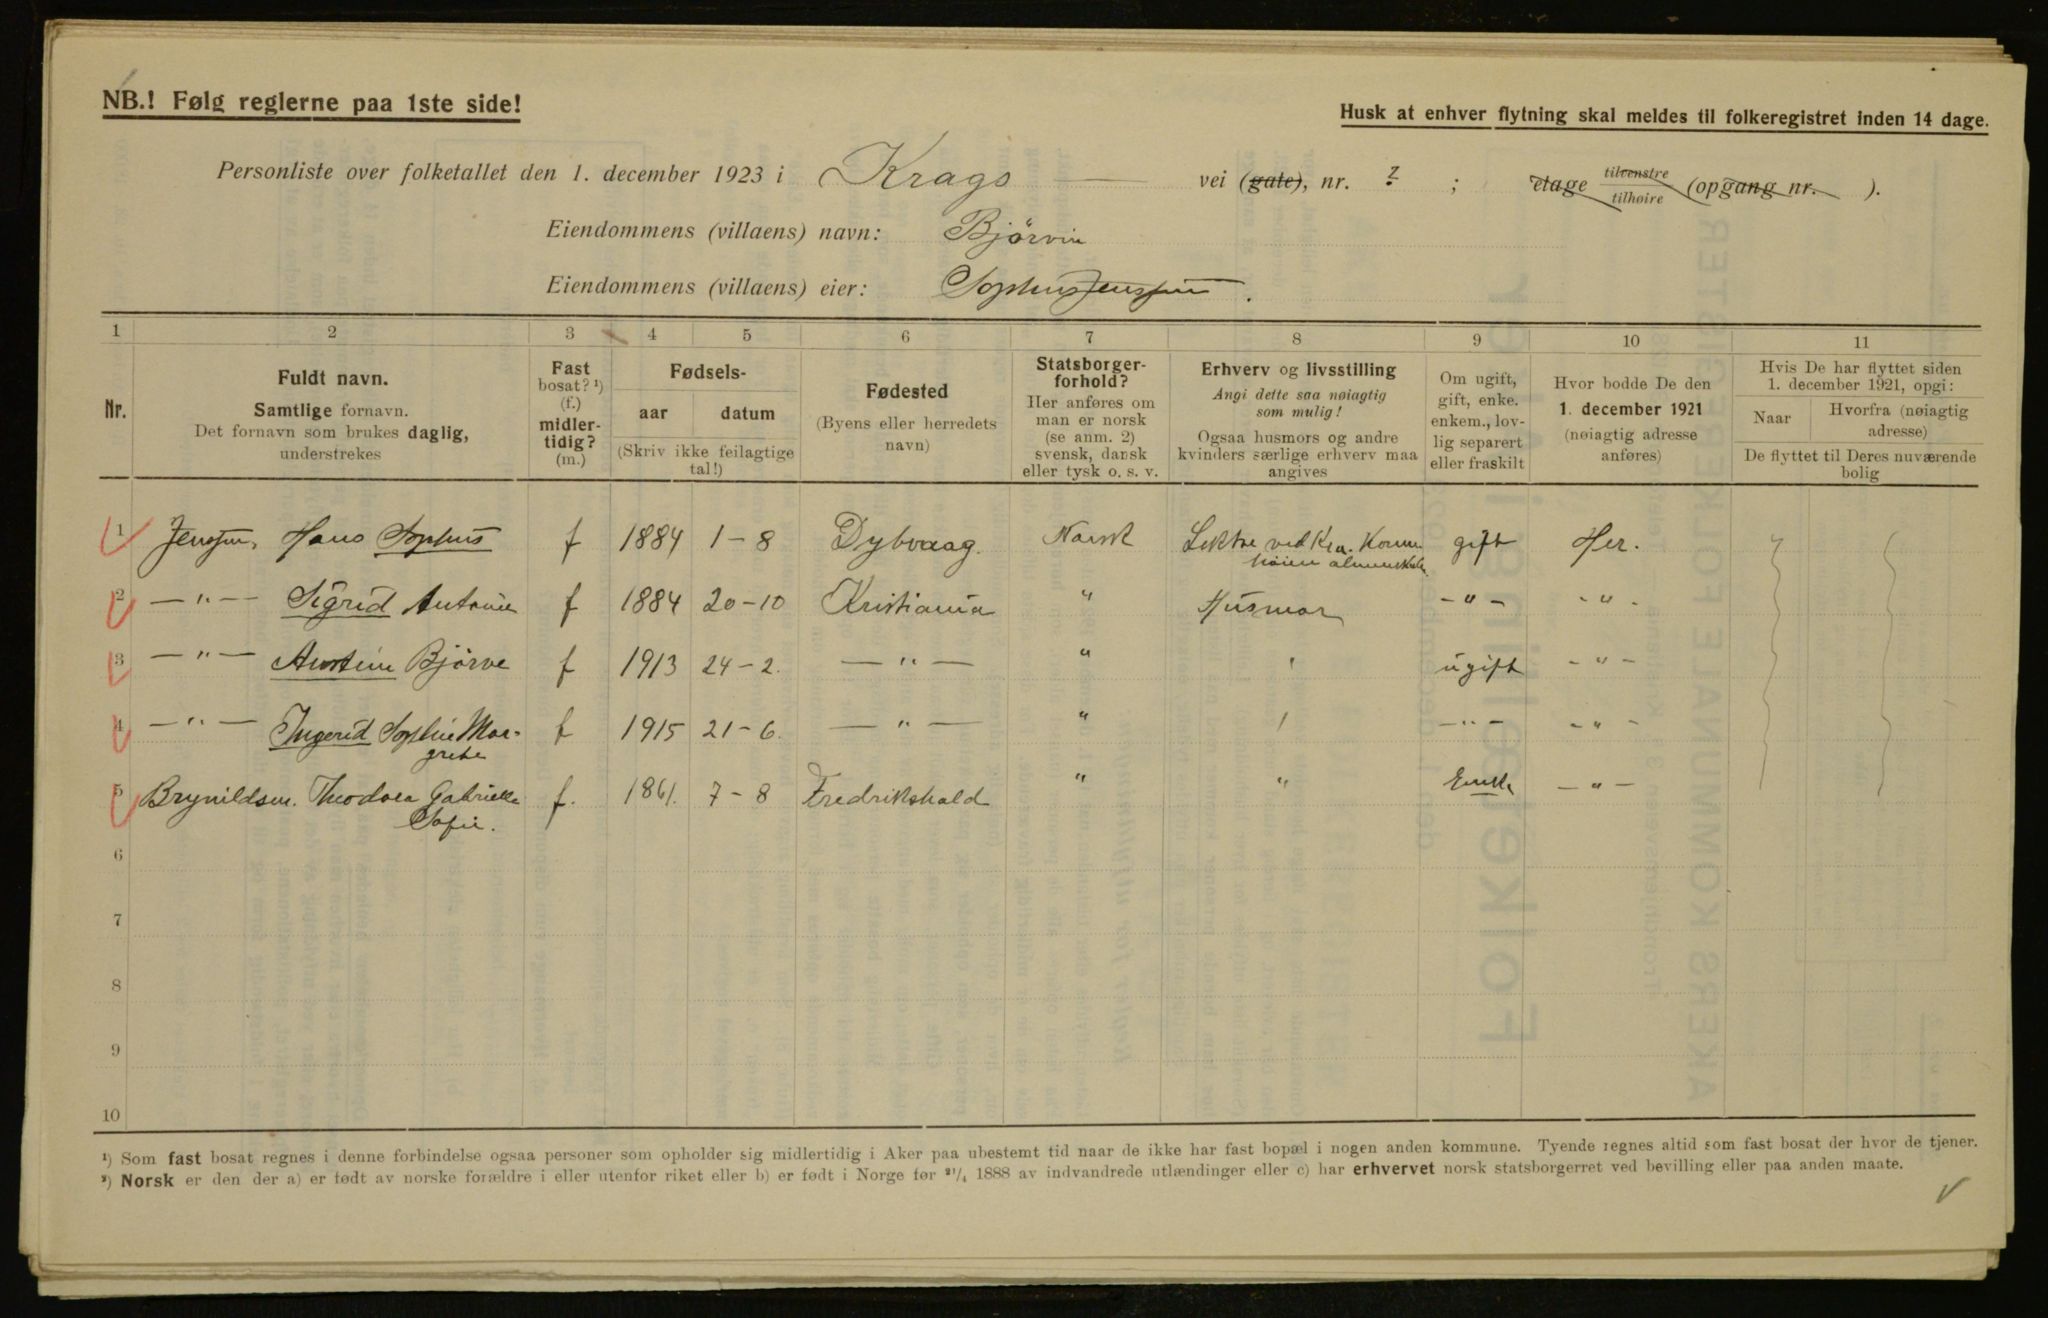 NB.! Følg reglerne paa 1ste side!
Husk at enhver flytning skal meldes til folkeregistret inden 14 dage.
Personliste over folketallet den 1. december 1923 i Krags — vei (gate), nr. ? ; etage tilvenstre tilhøire (opgang nr. ).
Eiendommens (villaens) navn: Bjørvin
Eiendommens (villaens) eier: Sophus Jenssen.
1 2 3 4 5 6 7 8 9 10 11
Nr.
Fuldt navn.
Samtlige fornavn.
Det fornavn som brukes daglig,
understrekes
Fast
bosat? ¹)
(f.)
midler-
tidig?
(m.)
Fødsels-
aar datum
(Skriv ikke feilagtige
tal!)
Fødested
(Byens eller herredets
navn)
Statsborger-
forhold?
Her anføres om
man er norsk
(se anm. 2)
svensk, dansk
eller tysk o. s. v.
Erhverv og livsstilling
Angi dette saa nøiagtig
som mulig!
Ogsaa husmors og andre
kvinders særlige erhverv maa
angives
Om ugift,
gift, enke.
enkem., lov-
lig separert
eller fraskilt
Hvor bodde De den
1. december 1921
(nøiagtig adresse
anføres)
Hvis De har flyttet siden
1. december 1921, opgi:
Naar Hvorfra (nøiagtig
adresse)
De flyttet til Deres nuværende
bolig
1 Jenssen, Hans Sophus f 1884 1 - 8 Dybvaag. Norsk Lektor ved Kra. Komm. gift Her.
høiere almenskole
2 — " — Sigrid Antonie f 1884 20 - 10 Kristiania " Husmor - " - - " -
3 — " — Bjørve f 1913 24 - 2. — " — " ugift - " -
4 — " — Ingerid Sophie Mar- f 1915 21 - 6. — " — " - " - - " -
grete
5 Brynildsen. Theodora Gabrielle f. 1861. 7 - 8 Fredrikshald " " Enke — " —
Sofie.
6
7
8
9
10
¹) Som fast bosat regnes i denne forbindelse ogsaa personer som opholder sig midlertidig i Aker paa ubestemt tid naar de ikke har fast bopæl i nogen anden kommune. Tyende regnes altid som fast bosat der hvor de tjener.
²) Norsk er den der a) er født av norske forældre i eller utenfor riket eller b) er født i Norge før ²¹/₄ 1888 av indvandrede utlændinger eller c) har erhvervet norsk statsborgerret ved bevilling eller paa anden maate.